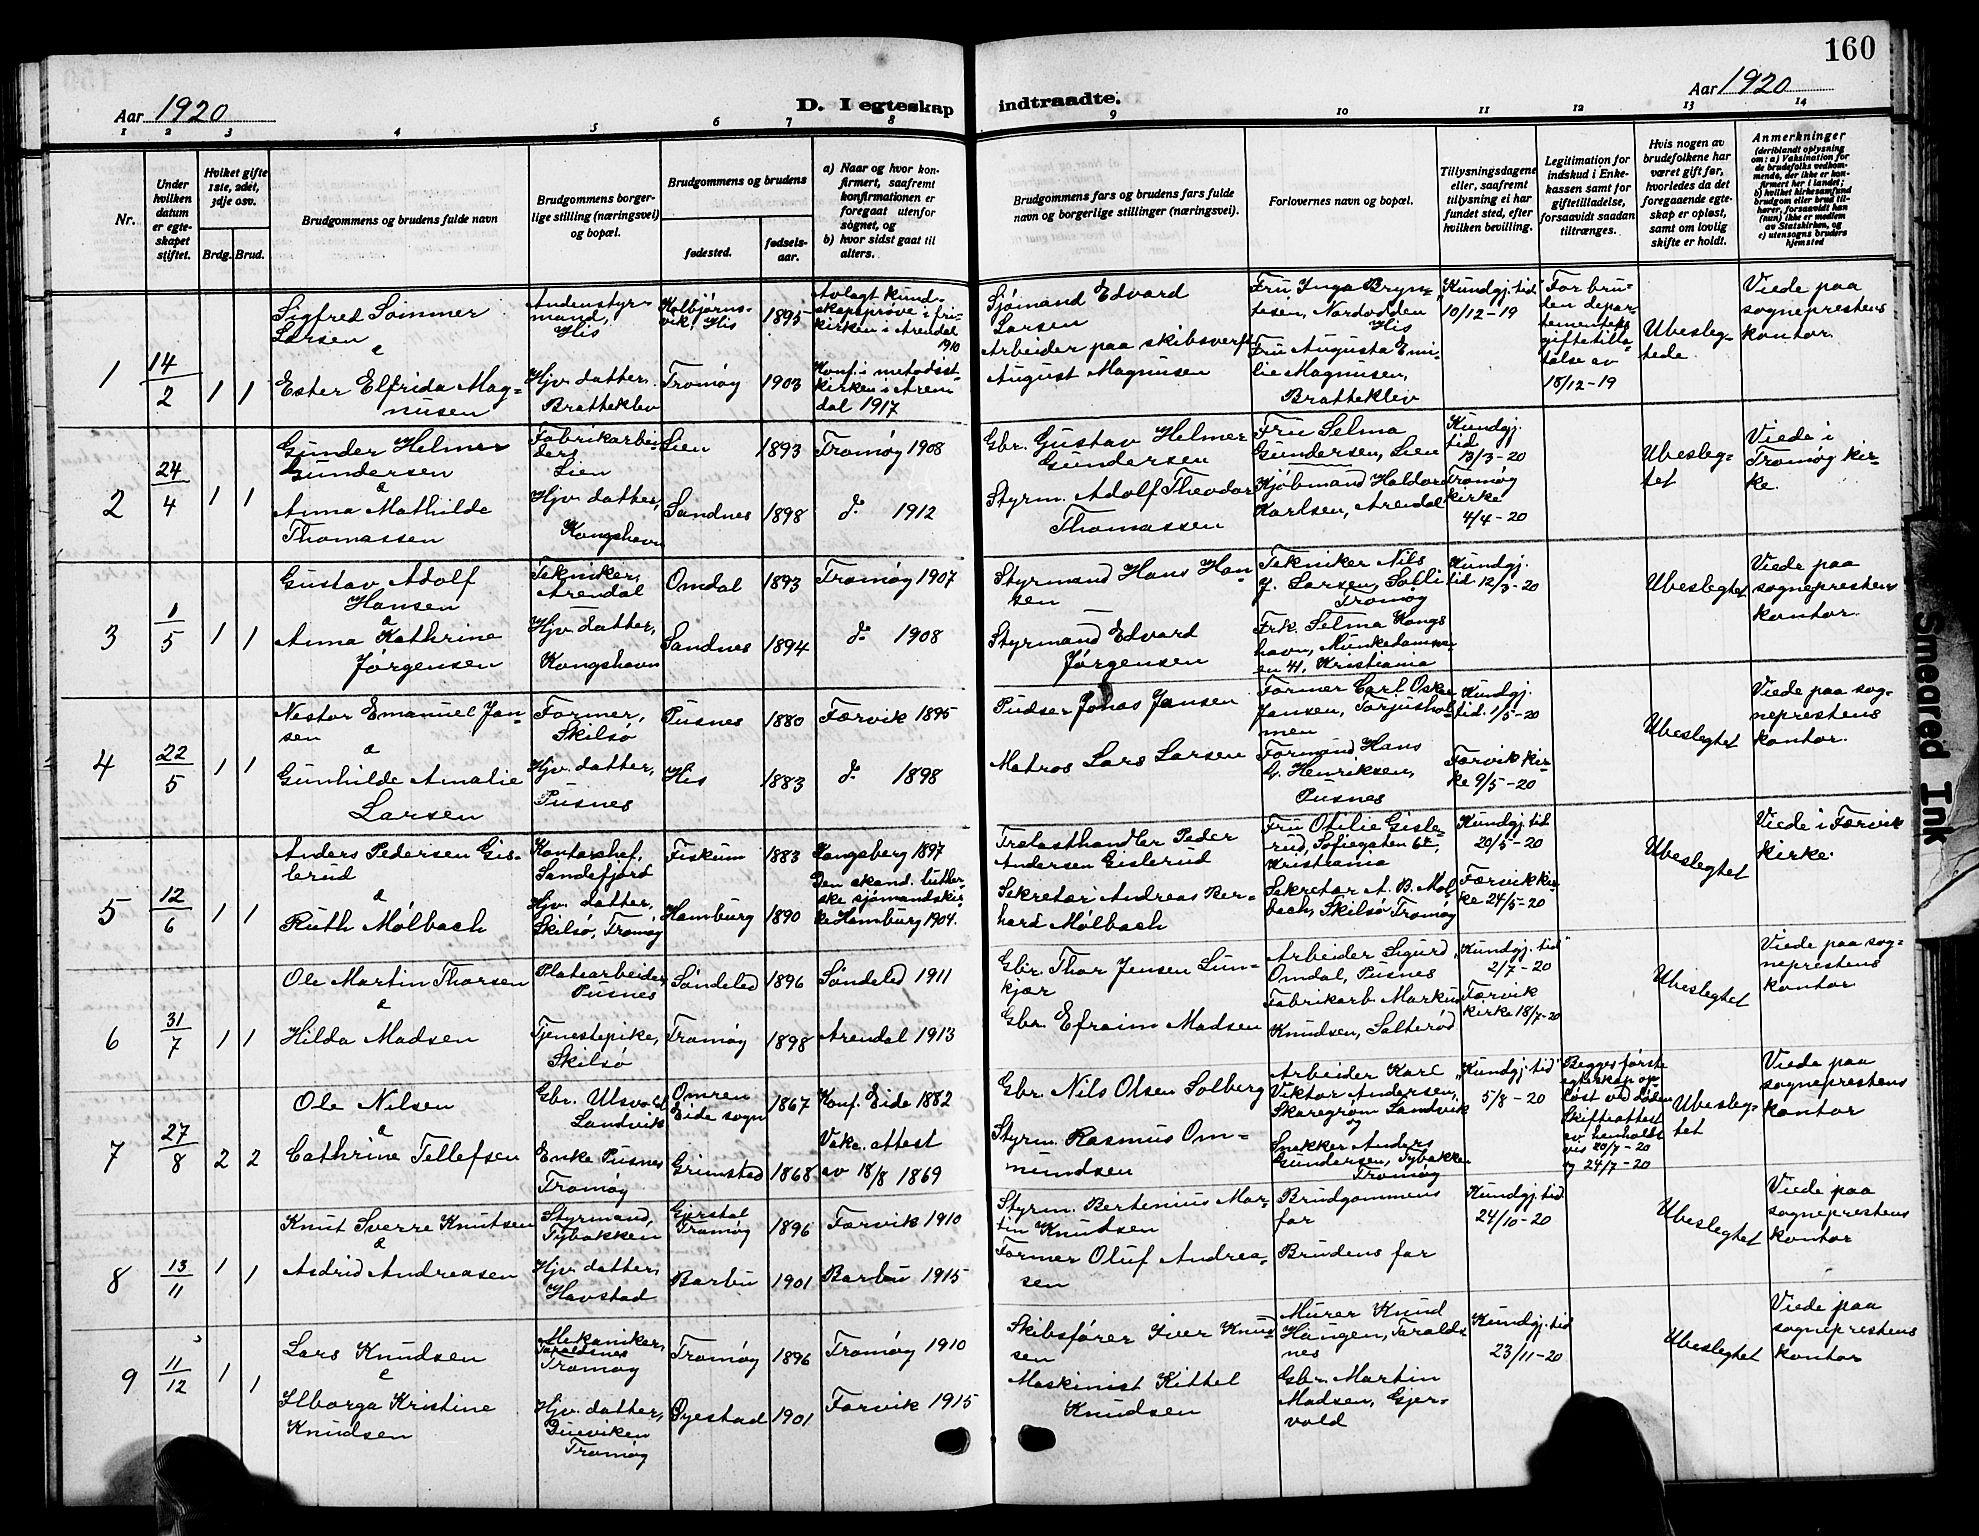 160
Aar 1920
D. I egteskap
indtraadte.
Aar 1920
1 2 3 4 5 6 7 8 9 10 11 12 13 14
Nr.
Under
hvilken
datum
er egte-
skapet
stiftet.
Hvilket gifte
1ste, 2det,
3dje osv.
Brdg. Brud.
Brudgommens og brudens fulde navn
Brudgommens borger-
lige stilling (næringsvei)
og bopæl.
Brudgommens og brudens
fødested.
fødsels-
aar.
a) Naar og hvor kon-
firmert, saafremt
konfirmationen er
foregaat utenfor
sognet, og
b) hvor sidst gaat til
alters.
Brudgommens fars og brudens fars fulde
navn og borgerlige stillinger (næringsvei).
Forlovernes navn og bopæl.
Tillysningsdagene
eller, saafremt
tillysning ei har
fundet sted, efter
hvilken bevilling.
Legitimation for
indskud i Enke-
kassen samt for
giftetilladelse,
forsaavidt saadan
tiltrænges.
Hvis nogen av
brudefolkene har
været gift før,
hvorledes da det
foregaaende egte-
skap er opløst,
samt om lovlig
skifte er holdt.
Anmerkninger
(deriblandt oplysning
om: a) Vaksination for
de brudefolks vedkom-
mende, der ikke er kon-
firmert her i landet;
b) hvilket kirkesamfund
brudgom eller brud til-
hører, forsaavidt han
(hun) ikke er medlem
av Statskirken, og
c) utensogns bruders
hjemsted
1
14/2
1 1
Sigfred Sommer
Larsen
&
Ester Elfrida Mag-
nusen
Andenstyr-
mand,
His
Hjv. datter.
Bratteklev
Kolbjørns-
vik, His
Tromøy
1895
1903
Avlagt kund-
skapsprøve i fri-
kirken i Arendal
1910
Konf. i metodist-
kirken i Aren-
dal 1917
Sjømand Edvard
Larsen
Arbeider paa skibsverft
August Magnusen
Fru Inga Bryn-
tesen, Nordodden
His
Fru Augusta Emi-
lie Magnusen,
Bratteklev
"Kundgj. tid"
10/12-19
For bru-
den depar-
tementets
giftetilla-
telse av
18/12-19
Ubesleg-
tede.
Viede paa
sogneprestens
kontor.
2
24/4
1 1
Gunder Helmer
Gundersen
&
Anna Mathilde
Thomassen
Fabrikarbei-
ders
Lien
Hjv. datter,
Kongshavn
Lien
Sandnes
1893
1898
Tromøy 1908
do 1912
Gbr. Gustav Helmer
Gundersen
Styrm. Adolf Theodor
Thomassen
Fru Selma
Gundersen, Lien
Kjøbmand Haldor
Karlsen, Arendal
Kundgj.
tid
13/3-20
Tromøy
kirke
4/4-20
Ubesleg-
tet
Viede i
Tromøy kir-
ke.
3
1/5
1 1
Gustav Adolf
Hansen
&
Anna Kathrine
Jørgensen
Tekniker,
Arendal
Hjv. datter,
Kongshavn
Omdal
Sandnes
1893
1894
Tromøy 1907
do 1908
Styrmand Hans Han-
sen
Styrmand Edvard
Jørgensen
Tekniker Nils
J. Larsen, Solli
Tromøy
Frk. Selma Kongs
havn, Munkedamsvei-
en 41, Kristiania
Kundgj.
tid 12/3-20
Ubeslegtet
Viede paa
sogneprestens
kontor.
4
22/5
1 1
Nestor Emanuel Jan-
sen
&
Gunhilde Amalie
Larsen
Former,
Skilsø
Hjv. datter,
Pusnes
Pusnes
His
1880
1883
Færvik 1895
do 1898
Pudser Jonas Jansen
Matros Lars Larsen
Former Carl Oskar
Jansen, Torjushol-
men
Formand Hans
G. Henriksen,
Pusnes
Kundgj.
tid. 1/5-20
Færvik kir-
ke 9/5-20
Ubeslegtet
Viede paa sog-
neprestens
kontor.
5
12/6
1 1
Anders Pedersen Gis-
lerud
&
Ruth Mølbach
Kontorchef,
Sandefjord
Hjv. datter,
Skilsø, Tromøy
Fiskum
Hamburg
1883
1890
Kongsberg 1897
Den skand. luther-
ske sjømandskir-
ke Hamburg 1904.
Trelasthandler Peder
Andersen Gislerud
Sekretær Andreas Ber-
hard Mølbach
Fru Otilie Gisle-
rud, Sofiegaten 6t,
Kristiania
Sekretær A. B. Møl-
bach, Skilsø Tromøy
Kundgj. tid
20/5-20
Færvik kir-
ke 24/5-20
Ubeslegtet
Viede i Færvik
kirke.
6
31/7
1 1
Ole Martin Thorsen
&
Hilda Madsen
Platearbeider,
Pusnes
Tjenestepike,
Skilsø
Søndeled
Tromøy
1896
1898
Søndeled 1911
Arendal 1913
Gbr. Thor Jensen Lun-
kjær
Gbr. Efraim Madsen
Arbeider Sigurd
Omdal, Pusnes
Fabrikarb. Markus
Knudsen, Salterød
"Kundgj. tid"
2/7-20
Færvik
kirke 18/7-20
Ubeslegtet
Viede paa sog-
neprestens
kontor
7
27/8
2 2
Ole Nilsen
&
Cathrine Tellefsen
Gbr. Ulsvold
Landvik
Enke Pusnes
Tromøy
Omren
Eide sogn
Grimstad
1867
1868
Konf. Eide 1882
Vakc. attest
av 18/8 1869
Gbr. Nils Olsen Solberg
Styrm. Rasmus Om-
mundsen
Arbeider Karl
Viktor Andersen,
Skaregrøm Landvik
og
Snekker Anders
Gundersen, Tybakken
Tromøy
"Kundgj. tid"
5/8-20
Begges første
egteskap op-
løst ved døden
Skifteattest
av henholds-
vis 20/7-20
og 24/7-20
Ubesleg-
tet
Viede paa
sogneprestens
kontor
8
13/11
1 1
Knut Sverre Knutsen
&
Astrid Andreasen
Styrmand,
Tybakken
Hjv. datter,
Havstad
Gjerstal
Tromøy
Barbu
1896
1901
Færvik 1910
Barbu 1915
Styrm. Bertenius Mar-
tin Knudsen
Former Oluf Andrea-
sen
Brudgommens
far
Brudens far
Kundgj. tid
24/10-20
Ubeslegtet
Viede paa
sogneprestens
kontor
9
11/12
1 1
Lars Knudsen
&
Ilborga Kristine
Knudsen
Mekaniker,
Taraldsnes
Tromøy
Hjv. datter,
Dueviken
Tromøy
Tromøy
Øyestad
1896
1901
Tromøy 1910
Færvik 1915
Skibsfører Iver Knud-
sen
Maskinist Kittel
Knudsen
Murer Knud
Haugen, Taralds-
nes
Gbr. Martin
Madsen, Gjer-
vold
Kundgj. tid
23/11-20
Ubeslegtet
Viede paa
sogneprestens
kontor
Smeared Ink